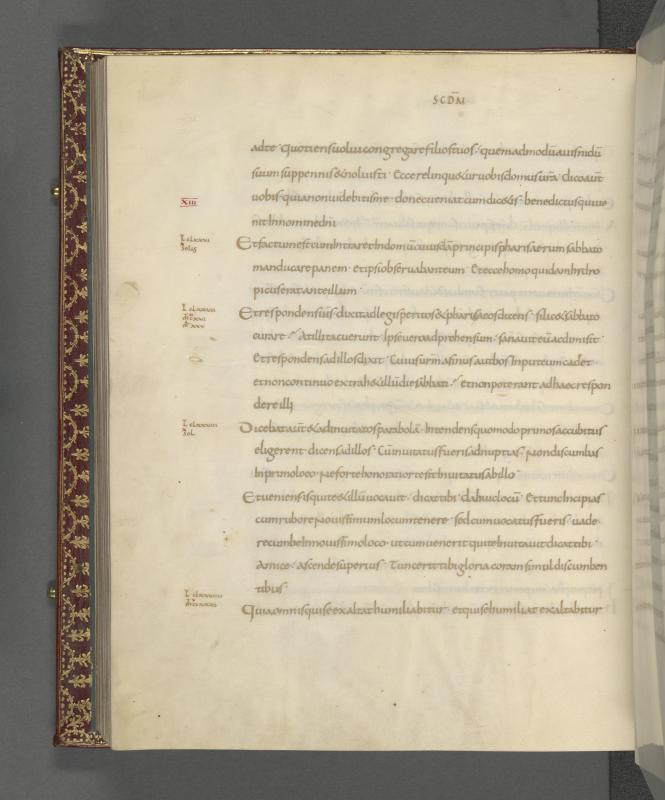 SCDM̅
ad te · quotiens uolui congregare filios tuos · quemadmodū auis nidū
suum sup pennis & noluisti · Ecce relinqu&ur uobis domus ur̄a · dico aūt
uobis · quia non uidebitis me · donec ueniat cum dic&is · benedictus qui ue
nit In nomine dn̄i
XIII
Et factum est cum Intrar& In domū cuiusdā principis pharisaeorum sabbato
manducare panem · et ipsi obseruabant eum · Et ecce homo quidam hidro
picus erat ante illum ·
Et respondens ih̄s · dixit ad legisperitos & pharisaeos dicens · si lic& sabbato
curare · At illi tacuerunt · Ipse uero adprehensum · sanauit eū ac dimisit ·
Et respondens ad illos dixit · Cuius ur̄m asinus aut bos In puteum cadet
et non continuo extrah& illū die sabbati · Et non poterant ad haec respon
dere illi
Dicebat aūt & ad inuitatos parabolā · Intendens quomodo primos accubitus
eligerent dicens ad illos · Cū inuitatus fueris ad nuptias · Non discumbas
In primo loco · Ne forte honoratior te sit Inuitatus ab illo ·
Et ueniens is qui te & illū uocauit · dicat tibi · da huic locū · Et tunc Incipias
cum rubore Nouissimum locum tenere · sed cum uocatus fueris · uade ·
recumbe In nouissimo loco · ut cum uenerit qui te Inuitauit dicat tibi ·
Amice · ascende superius · Tunc erit tibi gloria coram simul discumben
tibus ·
Quia omnis qui se exaltat humiliabitur · et qui se humiliat exaltabitur